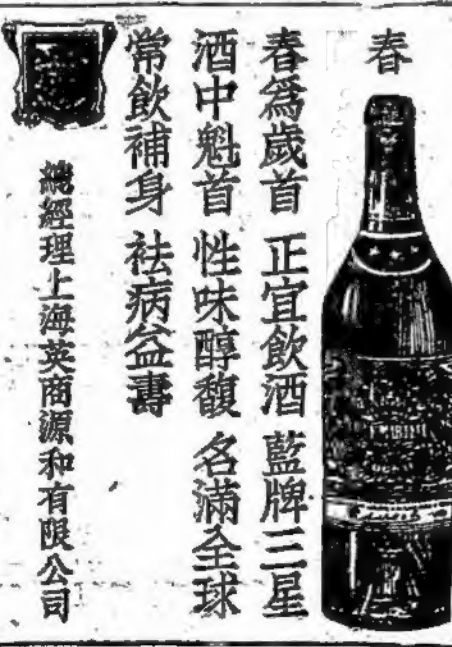 春
春為歲首 正宜飲酒 藍牌三星
酒中魁首 性味醇馥 名滿全球
常飲補身 祛病益壽
總經理上海英商源和有限公司